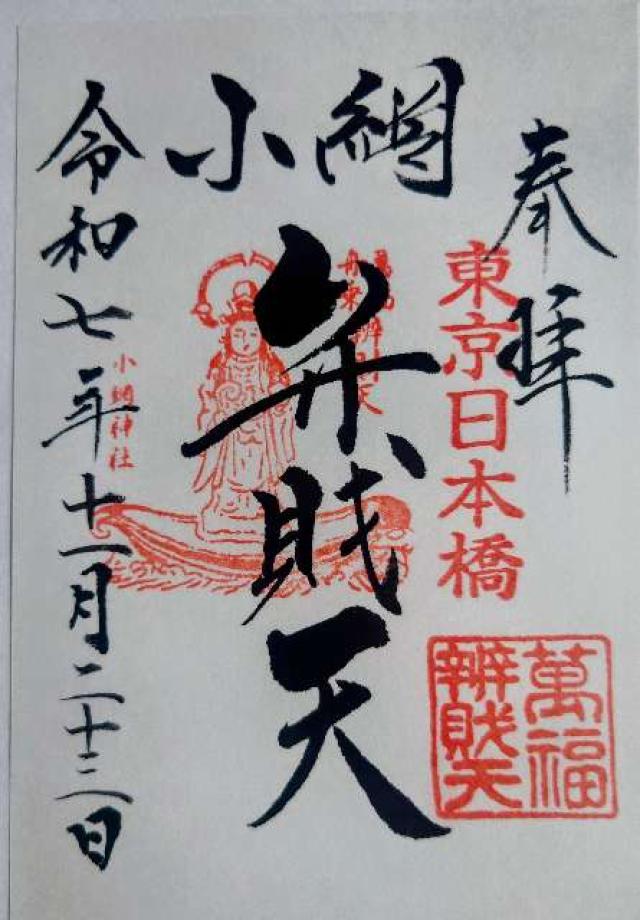 奉拝
東京日本橋
萬福
辨財天
小網
弁財天
萬福辨財天
舟乗
小網神社
令和七年十一月二十三日